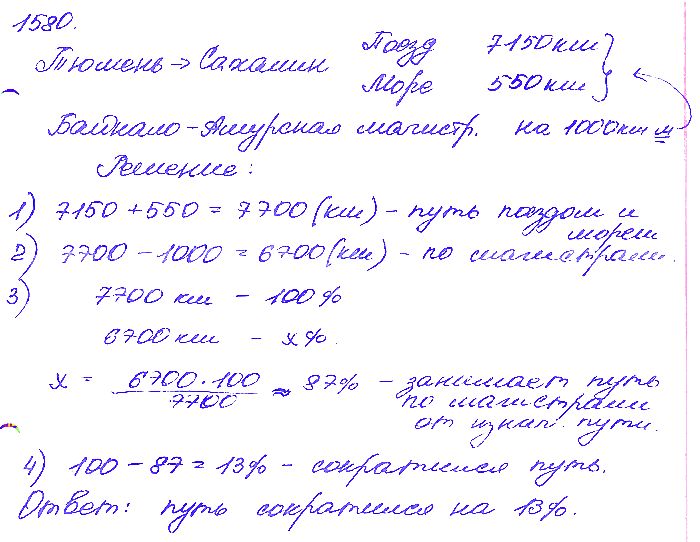 1580.
Поезд 7150 км
Тюмень → Сахалин
Море 550 км
Байкало-Амурская магистр. на 1000 км м
Решение:
1) 7150 + 550 = 7700 (км) - путь поездом и
морем
2) 7700 - 1000 = 6700 (км) - по магистрали.
3) 7700 км - 100%
6700 км - x%.
x = 6700 · 100 / 7700 ≈ 87% - занимает путь
по магистрали
от изнач. пути.
4) 100 - 87 = 13% - сократился путь.
Ответ: путь сократился на 13%.